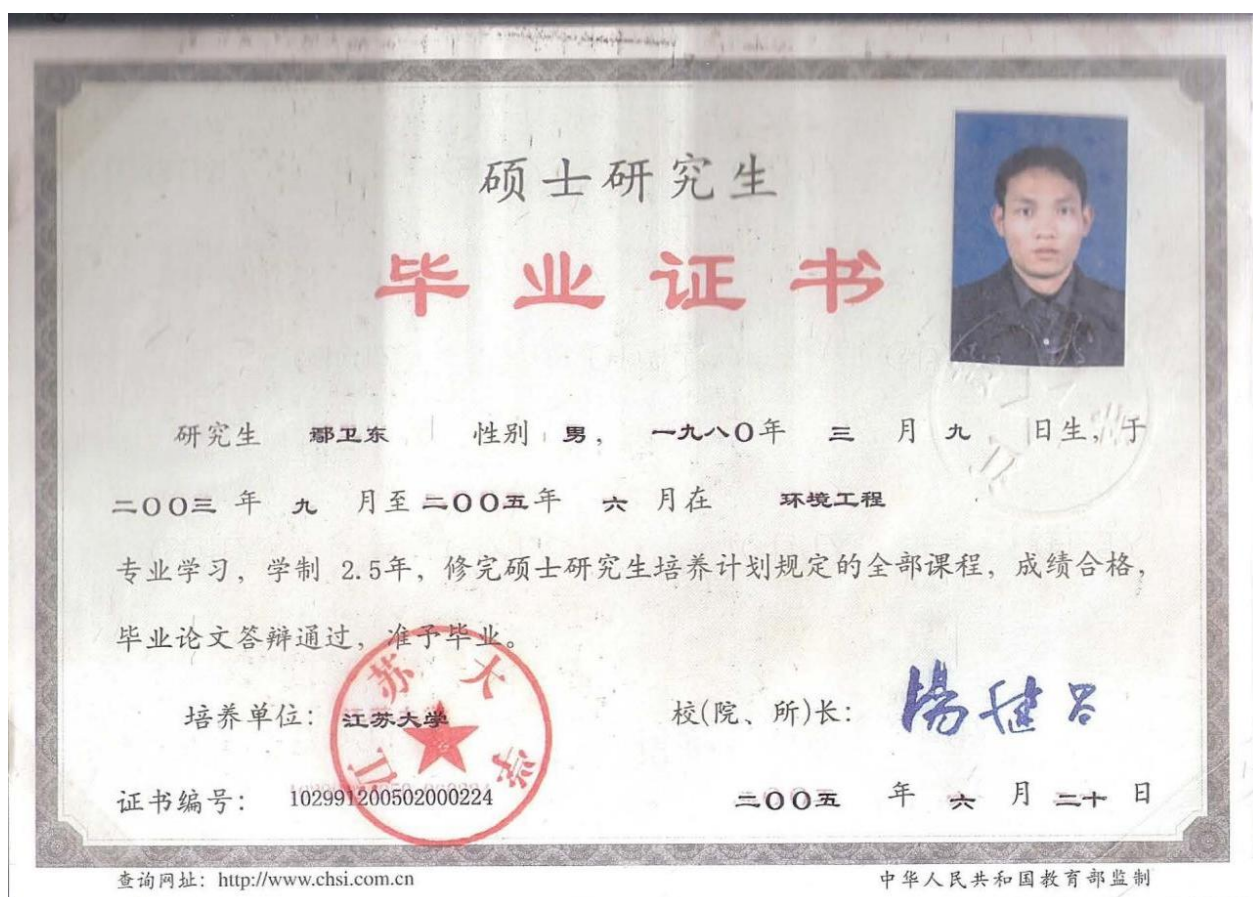 硕士研究生
毕业证书
研究生 鄢卫东 性别 男， 一九八〇年 三 月 九 日生，于
二〇〇三 年 九 月至 二〇〇五年 六 月在 环境工程
专业学习，学制 2.5年，修完硕士研究生培养计划规定的全部课程，成绩合格，
毕业论文答辩通过，准予毕业。
培养单位：江苏大学 校(院、所)长：楊继昌
江苏大学
证书编号：102991200502000224 二〇〇五 年 六 月 二十 日
查询网址：http://www.chsi.com.cn 中华人民共和国教育部监制